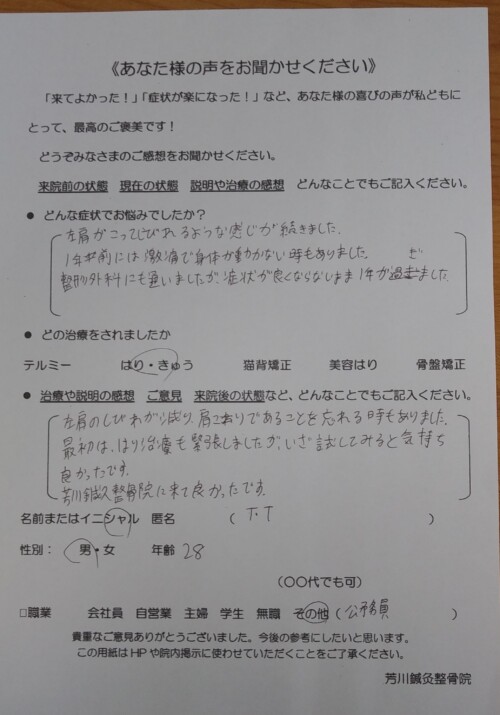 《あなた様の声をお聞かせください》
「来てよかった！」「症状が楽になった！」など、あなた様の喜びの声が私どもに
とって、最高のご褒美です！
どうぞみなさまのご感想をお聞かせください。
来院前の状態　現在の状態　説明や治療の感想　どんなことでもご記入ください。
● どんな症状でお悩みでしたか？
左肩がこってしびれるような感じが続きました。
1年半前には激痛で身体が動かない時もありました。
整形外科にも通いましたが、症状が良くならないまま1年が過ぎました。
● どの治療をされましたか
テルミー　はり・きゅう　猫背矯正　美容はり　骨盤矯正
● 治療や説明の感想　ご意見　来院後の状態など、どんなことでもご記入ください。
左肩のしびれが減り、肩こりであることを忘れる時もありました。
最初は、はり治療も緊張しましたが、いざ試してみると気持ち
良かったです。
芳川鍼灸整骨院に来て良かったです。
名前またはイニシャル　匿名　（ T.T ）
性別：　男・女　年齢 28
（〇〇代でも可）
□職業　会社員　自営業　主婦　学生　無職　その他（公務員）
貴重なご意見ありがとうございました。今後の参考にしたいと思います。
この用紙はHPや院内掲示に使わせていただくことをご了承ください。
芳川鍼灸整骨院